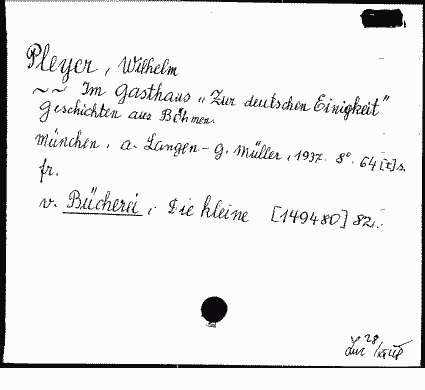 Pleyer, Wilhelm
~~ Im Gasthaus „Zur deutschen Einigkeit"
Geschichten aus Böhmen.
München. A. Langen-G. Müller, 1937. 8°. 64 [1] s.
fr.
v. Bücherei, Die kleine [149480] 82.
28